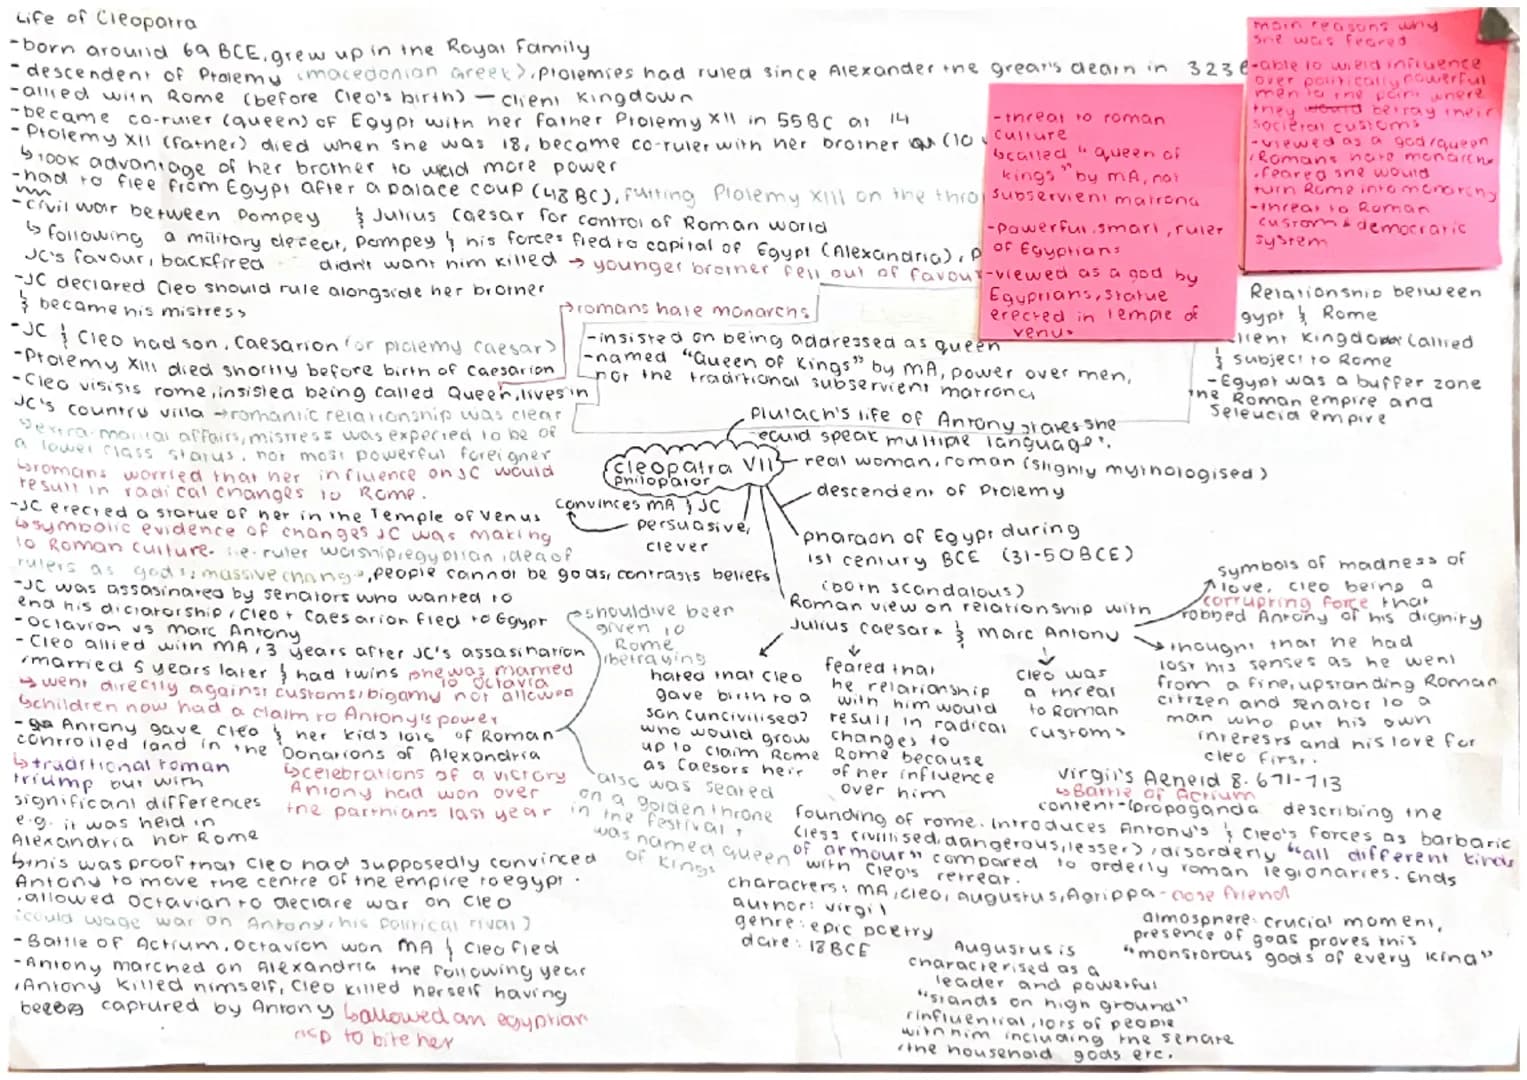 Life of Cleopatra
-born around 69 BCE, grew up in the Royal Family
-descendent of Ptolemy (macedonian Greek), Ptolemies had ruled since Alexander the great's death in 323
-allied with Rome (before Cleo's birth) — client Kingdown
-became co-ruler (queen) of Egypt with her father Ptolemy XII in 55BC at 14
-Ptolemy XII (father) died when she was 18, became co-ruler with her brother (10
↳took advantage of her brother to weild more power
-had to flee from Egypt after a palace coup (48 BC), putting Ptolemy XIII on the thro
-civil war between Pompey & Julius Caesar for control of Roman world
↳following a military defeat, Pompey & his forces fled to capital of Egypt (Alexandria), P
JC's favour, backfired didn't want him killed → younger brother fell out of favour
-JC declared Cleo should rule alongside her brother
& became his mistress
-JC & Cleo had son, Caesarion (or ptolemy caesar)
-Ptolemy XIII died shortly before birth of Caesarion
-Cleo visists rome, insisted being called Queen, lives in
JC's country villa → romantic relationship was clear
↳extra-marital affairs, mistress was expected to be of
a lower class status, not most powerful foreigner
↳romans worried that her influence on JC would
result in radical changes to Rome.
-JC erected a statue of her in the Temple of Venus
↳symbolic evidence of changes JC was making
to Roman culture. i.e. ruler worship, egyptian idea of
rulers as gods, massive change, people cannot be gods, contrasts beliefs
-JC was assasinated by senators who wanted to
end his dictatorship, Cleo + Caesarion fled to Egypt
-Octavion vs Marc Antony
-Cleo allied with MA, 3 years after JC's assasination
married 5 years later & had twins he was married
to Octavia
→ went directly against customs, bigamy not allowed
↳children now had a claim to Antony's power
-Antony gave Cleo & her kids lots of Roman
controlled land in the Donations of Alexandria
↳traditional roman
triump but with
significant differences
e.g. it was held in
Alexandria not Rome
↳celebrations of a victory
Antony had won over
the parthians last year
↳this was proof that Cleo had supposedly convinced
Antony to move the centre of the empire to egypt.
.allowed Octavian to declare war on Cleo
(could wage war on Antony, his political rival)
-Battle of Actium, Octavion won MA & Cleo fled
-Antony marched on Alexandria the following year
, Antony killed himself, Cleo killed herself having
captured by Antony ↳allowed an egyptian
asp to bite her
→romans hate monarchs
-insisted on being addressed as queen
-named "Queen of Kings" by MA, power over men,
not the traditional subservient matrona
-threat to roman
culture
↳called "queen of
kings" by MA, not
subservient matrona
-powerful, smart, ruler
of Egyptians
-viewed as a god by
Egyptians, statue
erected in temple of
venus
main reasons why
she was feared
-able to wield influence
over politically powerful
men to the point where
they would betray their
societal customs
-viewed as a god/queen
, Romans hate monarchs
, feared she would
turn Rome into monarchy
-threat to Roman
customs & democratic
system
Relationship between
gypt & Rome
lient Kingdom (allied
& subject to Rome
-Egypt was a buffer zone
the Roman empire and
Seleucid empire
Plutach's life of Antony states she
could speak multiple languages.
cleopatra VII
philopator
real woman, roman (slighly mythologised)
descendent of Ptolemy
convinces MA & JC
persuasive,
clever
pharaoh of Egypt during
1st century BCE (31-50BCE)
(both scandalous)
Roman view on relationship with
Julius caesar & marc Antony
symbols of madness of
love, cleo being a
corrupting force that
robbed Antony of his dignity
thought that he had
lost his senses as he went
from a fine, upstanding Roman
citizen and senator to a
man who put his own
interests and his love for
cleo first.
should've been
given to
Rome
(betraying
hated that cleo
gave birth to a
son (uncivilised)
who would grow
up to claim Rome
as Caesors heir
feared that
he relationship
with him would
result in radical
changes to
Rome because
of her influence
over him
cleo was
a threat
to Roman
customs
also was seated
on a golden throne
in the festival +
was named queen
of kings
Virgil's Aeneid 8.671-713
↳Battle of Actium
content-(propaganda describing the
founding of rome. Introduces Antony's & Cleo's forces as barbaric
(less civillised, dangerous, lesser), disorderly "all different kinds
of armour" compared to orderly roman legionaries. Ends
with Cleo's retreat.
characters: MA, Cleo, augustus, Agrippa-close friend
author: virgil
genre: epic poetry
date: 18BCE
atmosphere: crucial moment,
presence of goas proves this
"monstorous gods of every kind"
Augustrus is
characterised as a
leader and powerful
"stands on high ground"
(influential, lots of people
with him including the senate
, the household gods etc.